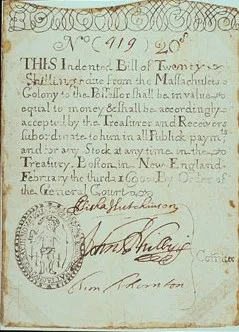 No (919) 20s
THIS Indented Bill of Twenty
Shillings due from the Massachusets
Colony to the Possessor shall be in value
equal to money & shall be accordingly
accepted by the Treasurer and Receivers
subordinate to him in all Publick paymts
and for any Stock at any time in the
Treasury. Boston in New England
February the third 1690. By Order of
the General Court
Elisha Hutchinson
John Phillips
Tim Thornton